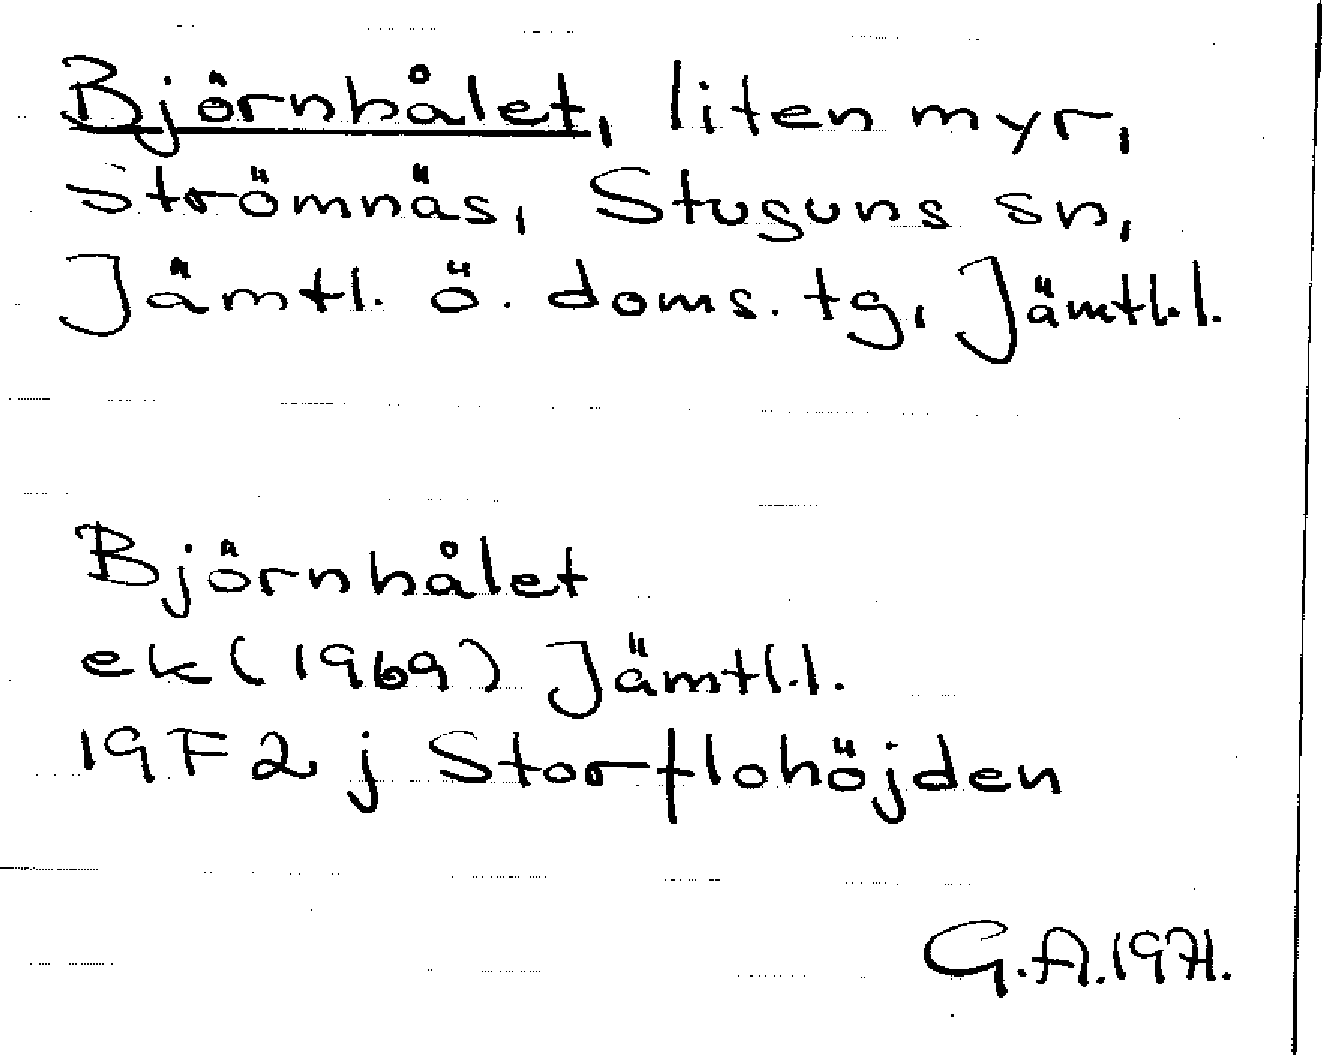 Björnhålet, liten myr,
Strömnäs, Stuguns sn,
Jämtl. ö. doms. tg, Jämtl.l.
Björnhålet
ek (1969) Jämtl.l.
19F 2 j Storflohöjden
G.A.1971.